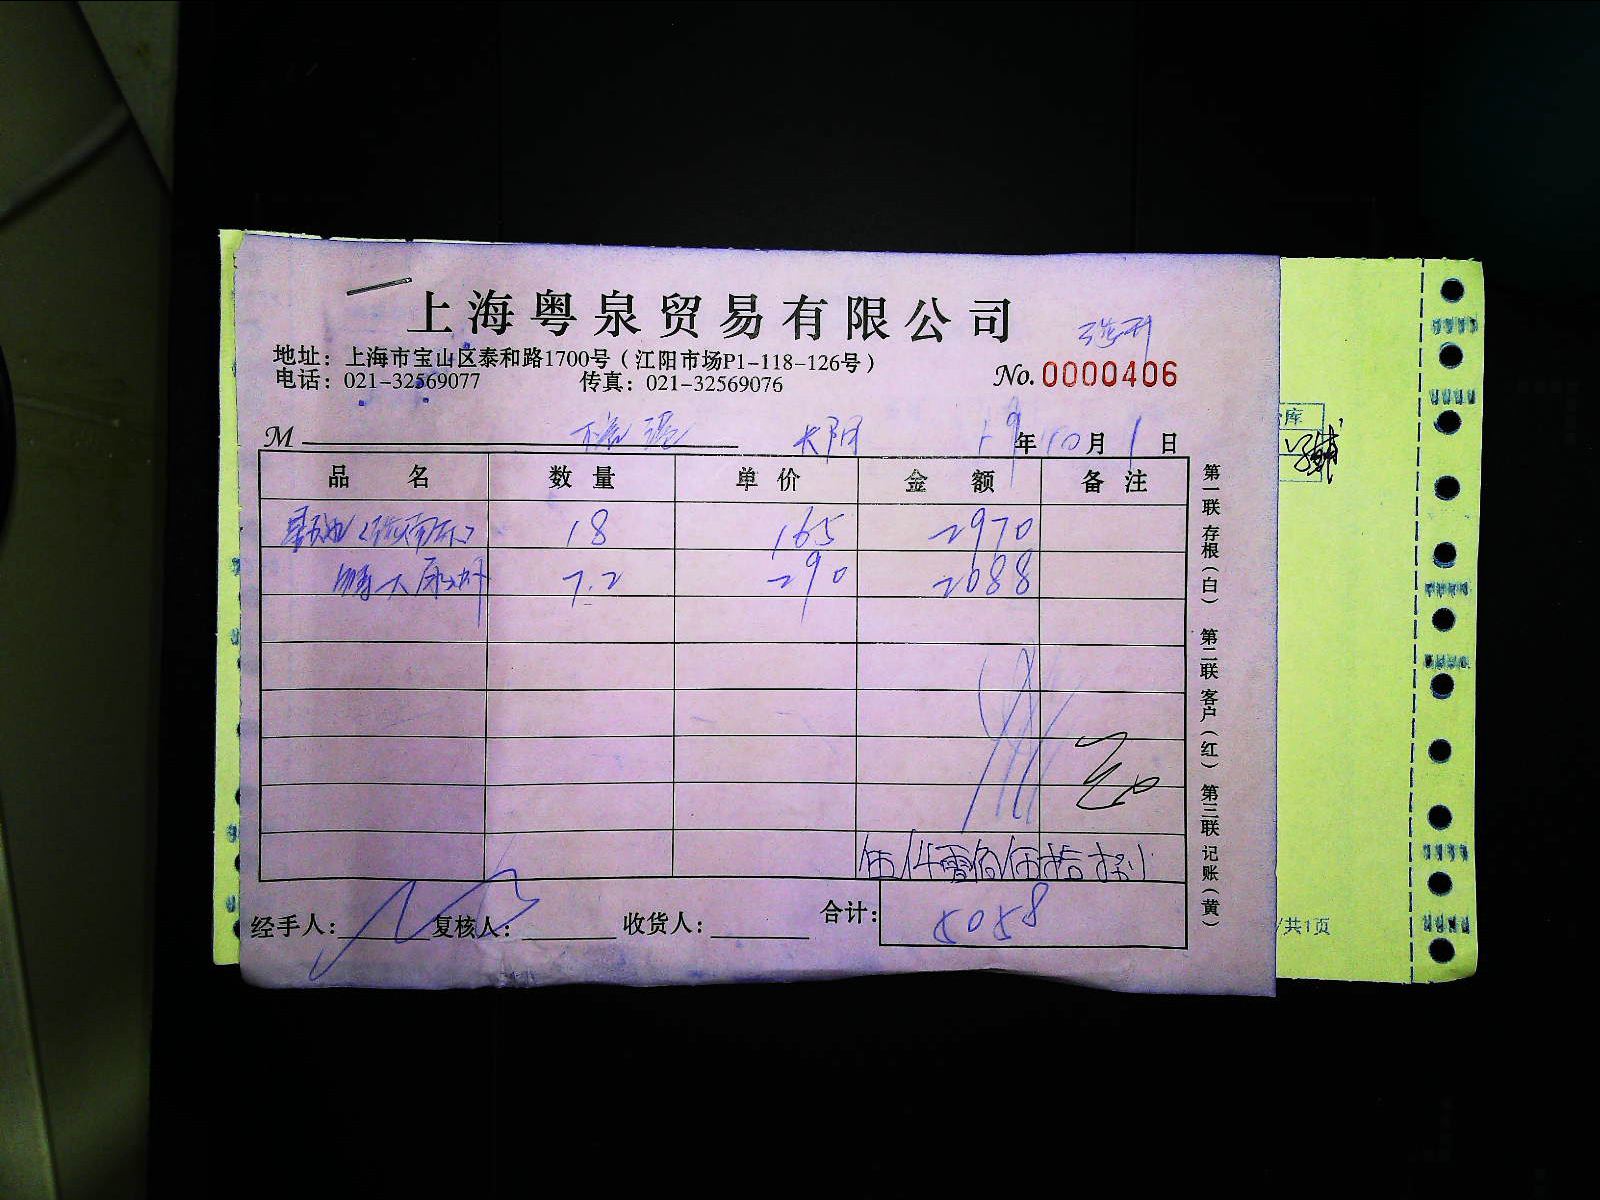 上海粤泉贸易有限公司
地址：上海市宝山区泰和路1700号（江阳市场P1-118-126号）
电话：021-32569077 传真：021-32569076
No. 0000406
M 太阳 年 10月1日
品名 数量 单价 金额 备注
18 165 2970
7.2 290 2088
伍仟零佰伍拾捌
经手人： 复核人： 收货人： 合计： 5058
第一联 存根（白） 第二联 客户（红） 第三联 记账（黄）
库
/共1页